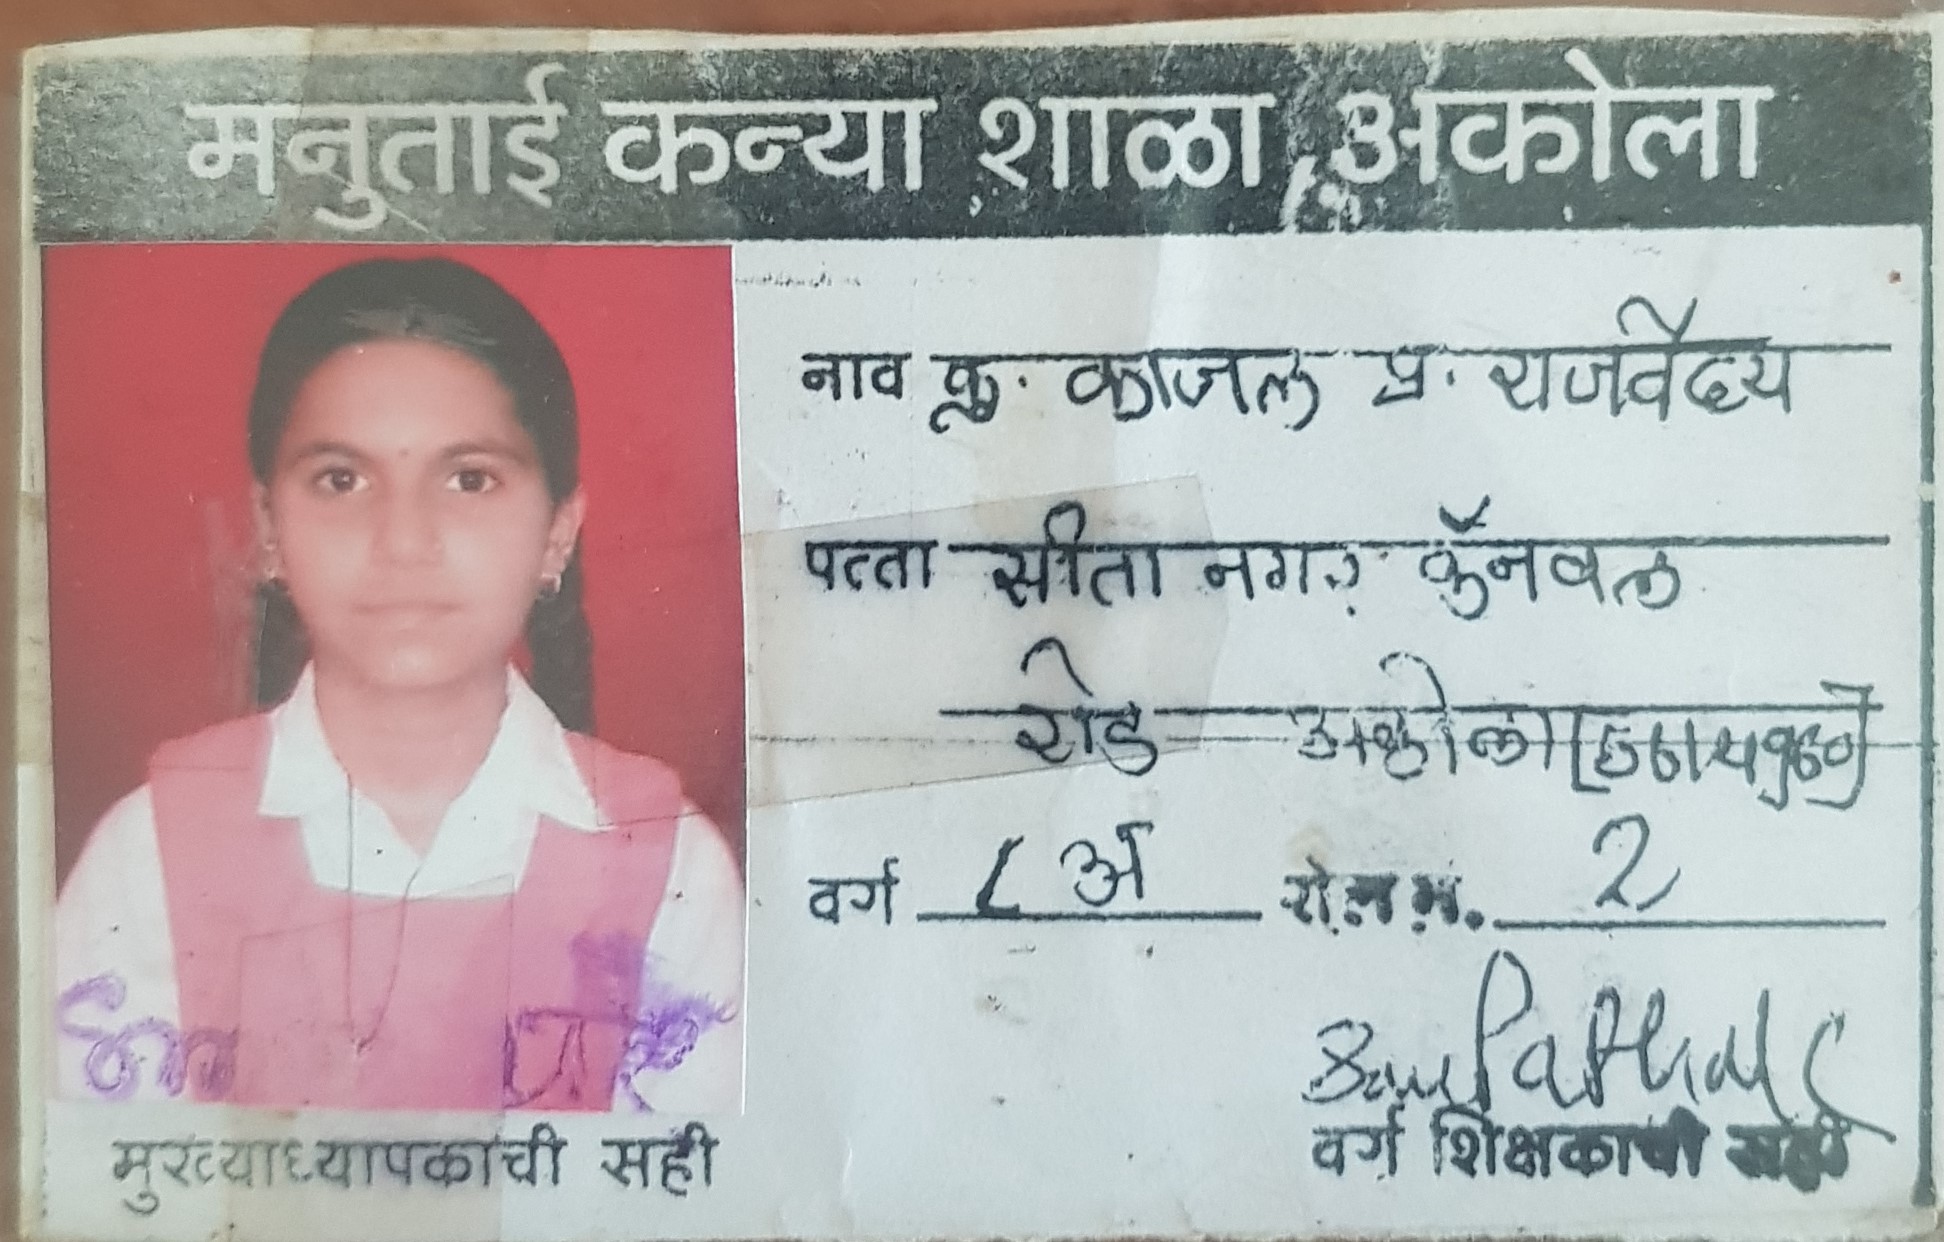 मनुताई कन्या शाळा, अकोला
नाव कु. काजल प्र. राजवैद्य
पत्ता सीता नगर कॅनवल
रोड अकोला
वर्ग ८ अ रोल नं. 2
Pathak
मुख्याध्यापकाची सही
वर्ग शिक्षकाची सही